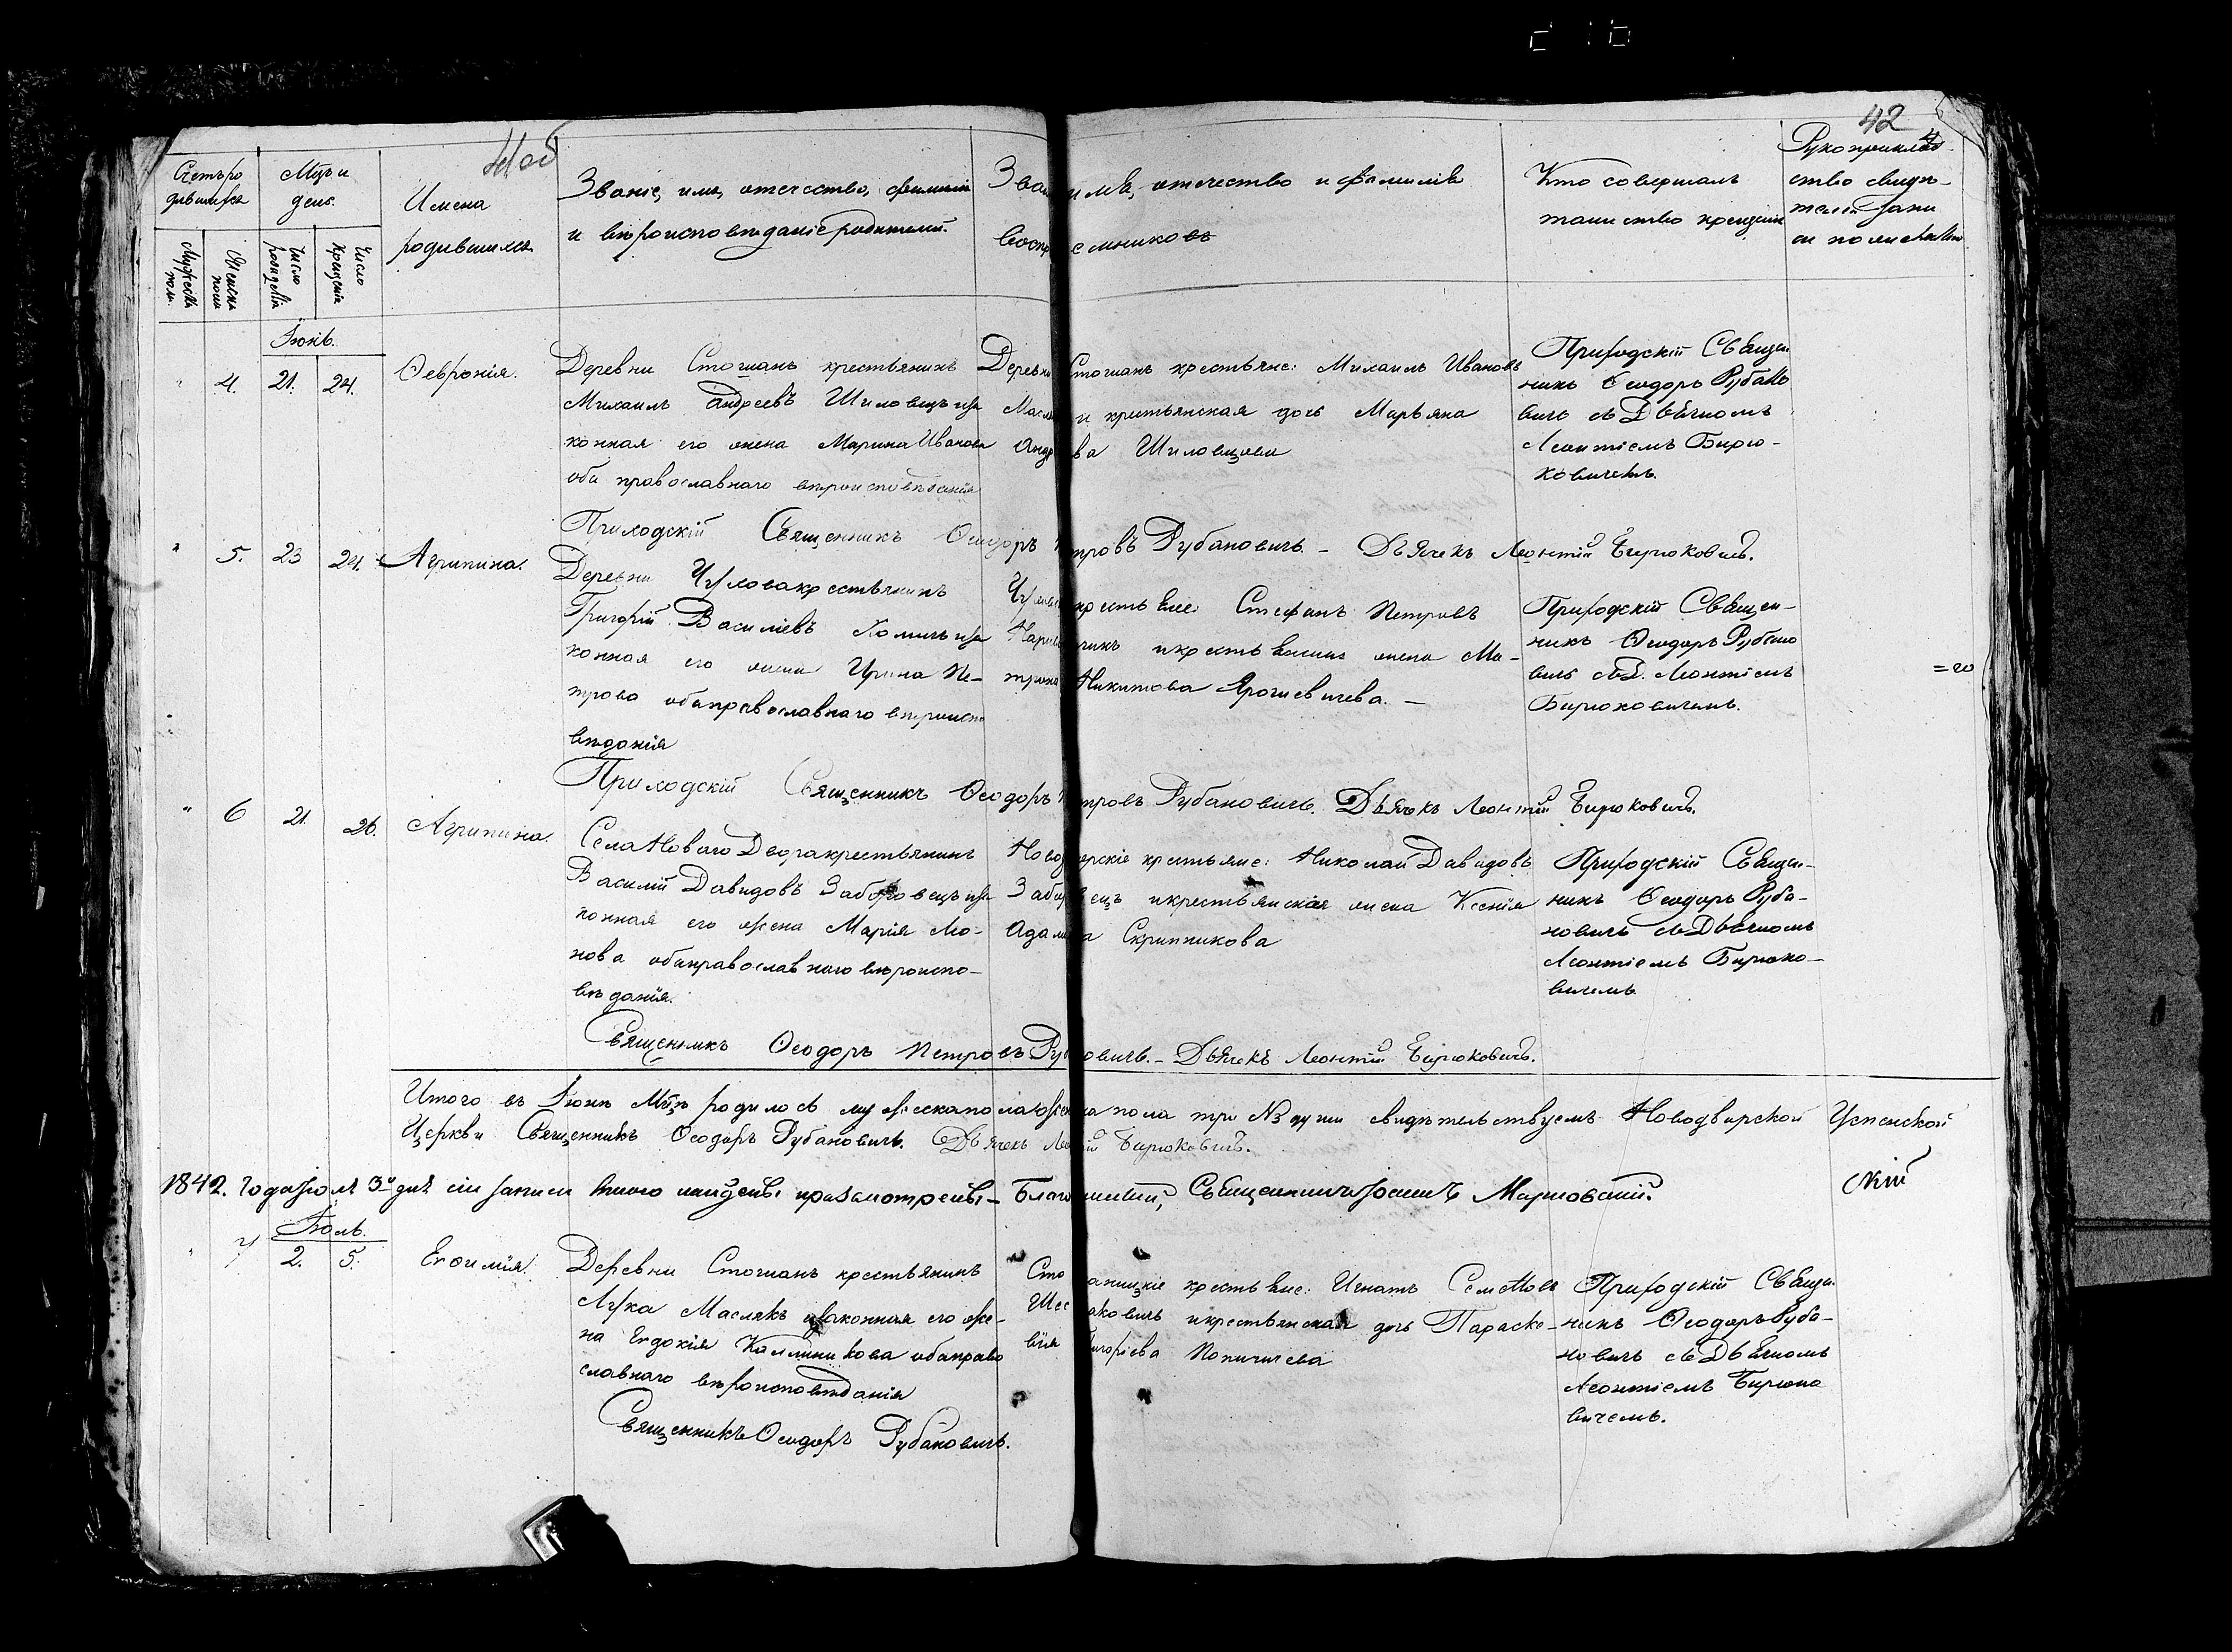 41об
42
Счетъ родившихся
Мцъ и день.
Имена родившихся
Званіе, имя, отечество, фамилія и вѣроисповѣданіе родителей.
Званіе, имя, отечество и фамилія воспріемниковъ
Кто совершалъ таинство крещенія
Рукоприкладство свидѣтелей записи по желанію
Мужеска пола.
Женска пола
Число рожденія
Число крещенія
Іюнь.
4. 21. 24. Ѳевронія.
Деревни Стошанъ крестьянинъ
Михаилъ Андреевъ Шиловецъ иза
конная его жена Марина Иванова
оба православнаго вѣроисповѣданія
Деревни Стошанъ крестьяне: Михаилъ Ивановъ
и крестьянская дочь Марьяна
Шиловцова
Приходскій Священ
никъ Ѳеодоръ Рубано
вичь съ Дьячкомъ
Леонтіемъ Бирю-
ковичемъ.
Приходскій Священникъ Ѳеодоръ Петровъ Рубановичь. - Дьячекъ Леонтій Бирюковичъ.
5. 23 24. Агрипина.
Деревни крестьянинъ
Григорій Василіевъ Хомичь иза
конная его жена Ирина Пе-
трова оба православнаго вѣроиспо
вѣданія
крестьяне: Стефанъ Петровъ
и крестьянская жена Ма-
трона Никитова Ярошевичева. -
Приходскій Священ-
никъ Ѳеодоръ Рубано
вичь съ Д. Леонтіемъ
Бирюковичемъ.
Приходскій Священникъ Ѳеодоръ Петровъ Рубановичь. Дьячекъ Леонтій Бирюковичъ.
6 21. 26. Агрипина.
Села Новаго Двора крестьянинъ
Василій Давидовъ Заборовецъ иза
конная его жена Марія
нова оба православнаго вѣроиспо-
вѣданія.
Новодворскіе крестьяне: Николай Давидовъ
Заборовецъ и крестьянская жена Ксенія
Адамова Скрипникова
Приходскій Священ-
никъ Ѳеодоръ Руба-
новичь съ Дьячкомъ
Леонтіемъ Бирюко-
вичемъ.
Священникъ Ѳеодоръ Петровъ Рубановичь. - Дьячекъ Леонтій Бирюковичъ.
Итого въ Іюнѣ Мцѣ родилось женска пола три №3 души свидѣтельствуемъ Новодворской Успенской
Церкви Священникъ Ѳеодоръ Рубановичь. Дьячекъ Леонтій Бирюковичъ.
1842. года Іюля 3 дня сіи записи Благочинный, Священникъ
скій
Іюль.
7 2. 5. Евѳимія.
Деревни Стошанъ крестьянинъ
Лука Маслякъ изаконная его же-
на Евдокія Каллиникова оба право
славнаго вѣроисповѣданія
крестьяне: Игнатъ Семеновъ
и крестьянская дочь Параске-
вія Григоріева
Приходскій Священ
никъ Ѳеодоръ Руба-
новичь съ Дьячкомъ
Леонтіемъ Бирюко
вичемъ.
Священникъ Ѳеодоръ Рубановичь.